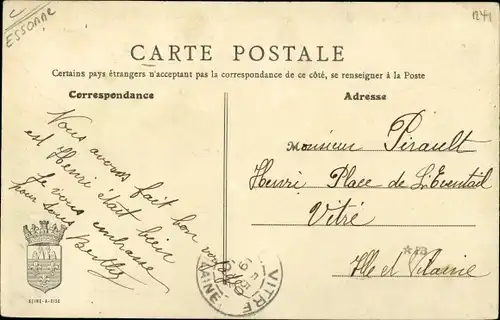 ESSONNE
1241
CARTE POSTALE
Certains pays étrangers n'acceptant pas la correspondance de ce côté, se renseigner à la Poste
Correspondance
Adresse
Vous avons fait bon voyage
est Henri était bien
Je vous embrasse
pour tous
Berthe
Monsieur Pirault
Henri Place de L'Eventail
Vitré
Ille et Vilaine
VITRE
SEINE-&-OISE